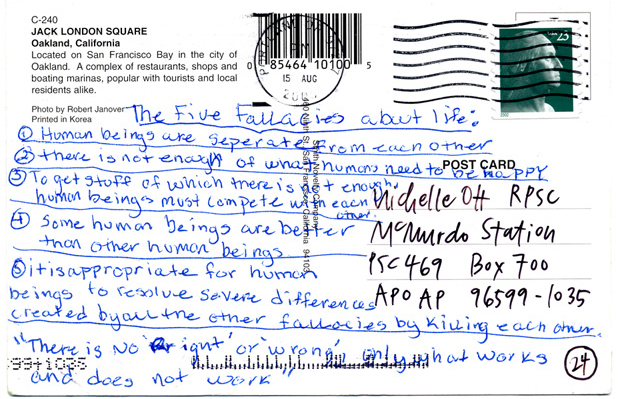 C-240
JACK LONDON SQUARE
Oakland, California
Located on San Francisco Bay in the city of
Oakland. A complex of restaurants, shops and
boating marinas, popular with tourists and local
residents alike.
Photo by Robert Janover
Printed in Korea
0 85464 10100 5
15 AUG
23
POST CARD
Smith Novelty Company
San Francisco, California 94103
The Five Fallacies about life:
① Human beings are seperate from each other
② there is not enough of what humans need to be HAPPY
③ To get stuff of which there is not enough,
human beings must compete with each
other.
④ Some human beings are better
than other human beings
⑤ it is appropriate for human
beings to resolve severe differences
created by all the other fallacies by killing each other.
"There is No 'right' or 'wrong' only what works
and does not work"
Michelle Ott RPSC
McMurdo Station
PSC 469 Box 700
APO AP 96599-1035
24